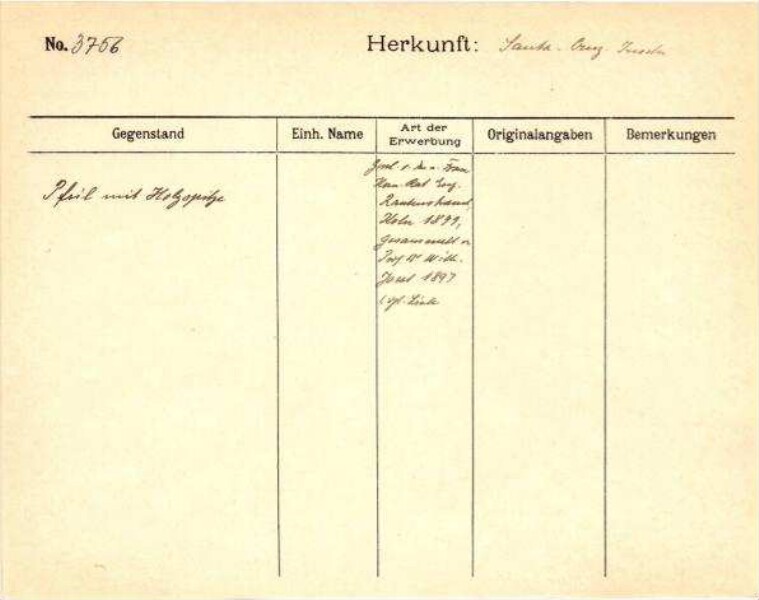 No. 3756 Herkunft: Santa-Cruz-Inseln
Gegenstand Einh. Name Art der Erwerbung Originalangaben Bemerkungen
Pfeil mit Holzspitze
Frau
Kom. Rat Eug.
Rautenstrauch,
Köln 1899,
gesammelt v.
Prof. Dr Wilh.
Joest 1897
(vgl. Liste